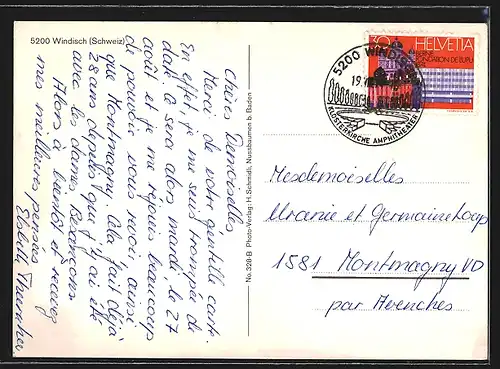 5200 Windisch (Schweiz)
Chères Demoiselles
Merci de votre gentille carte.
En effet, je me suis trompée de
date. Ce sera alors mardi, le 27
août et je me réjouis beaucoup
de pouvoir vous revoir, ainsi
que Montmagny. Cela fait déjà
28 ans depuis que j'ai été
avec les dames Besançons.
Alors à bientôt et recevez
mes meilleures pensées
Elsbeth
No. 328-B Photo-Verlag: H. Schmidli, Nussbaumen b. Baden
5200 WINDISCH
KLOSTERKIRCHE AMPHITHEATER
HELVETIA
Mesdemoiselles
Uranie et Germaine Loup
1581 Montmagny VD
par Avenches